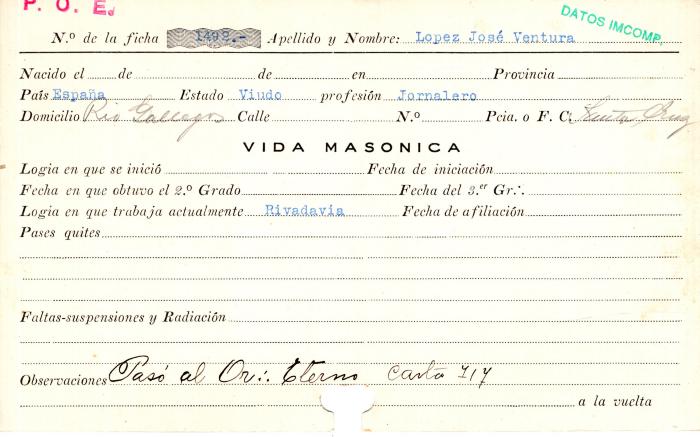 P. O. E.
DATOS IMCOMP.
N.º de la ficha 1492.- Apellido y Nombre: Lopez José Ventura
Nacido el de de en Provincia
País España Estado Viudo profesión Jornalero
Domicilio Rio Gallegos Calle N.º Pcia. o F. C. Santa Cruz
VIDA MASONICA
Logia en que se inició Fecha de iniciación
Fecha en que obtuvo el 2.º Grado Fecha del 3.er Gr∴
Logia en que trabaja actualmente Rivadavia Fecha de afiliación
Pases quites
Faltas-suspensiones y Radiación
Observaciones Pasó al Or∴ Eterno Carta 7/7
a la vuelta